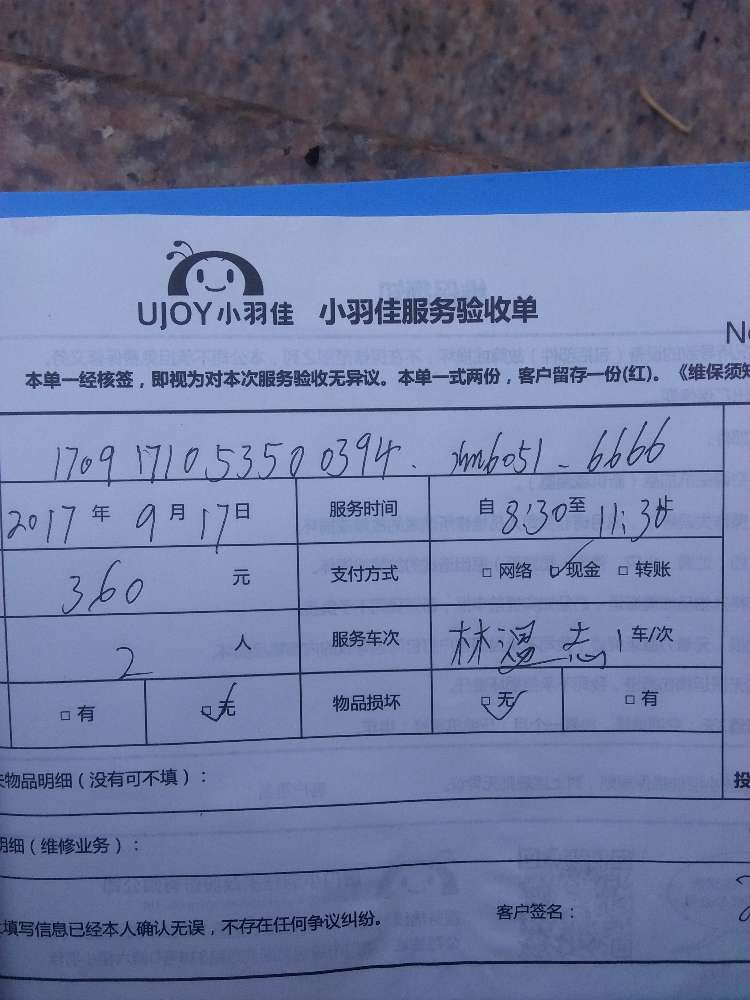 UJOY小羽佳 小羽佳服务验收单
本单一经核签，即视为对本次服务验收无异议。本单一式两份，客户留存一份(红)。《维保须知
1709171053500394. xm6051-6666
2017年9月17日 服务时间 自8:30至11:30止
360元 支付方式 □网络 ☑现金 □转账
2人 服务车次 林 志 1车/次
□有 ☑无 物品损坏 ☑无 □有
物品明细（没有可不填）：
投
明细（维修业务）：
填写信息已经本人确认无误，不存在任何争议纠纷。 客户签名：